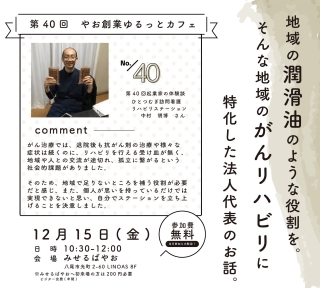 第40回　やお創業ゆるっとカフェ
地域の潤滑油のような役割を。
そんな地域のがんリハビリに
特化した法人代表のお話。
No.
40
第40回起業家の体験談
ひとつむぎ訪問看護
リハビリステーション
中村　明澄　さん
comment
がん治療では、退院後も抗がん剤の治療や様々な
症状は続くのに、リハビリを行える受け皿が無く、
地域や人との交流が途切れ、孤立に繋がるという
社会的課題がありました。
そのため、地域で足りないところを補う役割が必要
だと感じ、また、個人が思いを持っているだけでは
実現できないと思い、自分でステーションを立ち上
げることを決意しました。
12月15日(金)
日　時　10:30-12:00
会　場　みせるばやお
八尾市光町2-60 LINOAS 8F
※みせるばやおへ初来場の方は200円必要
参加費
無料